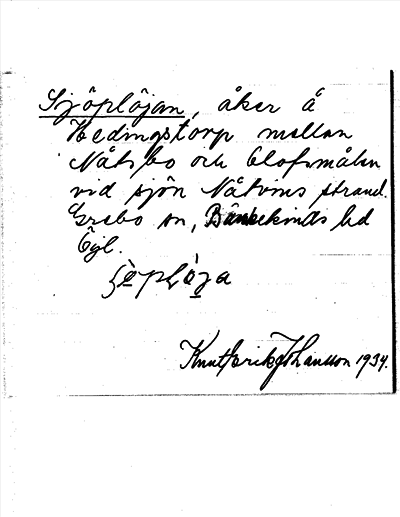 Sjöplöjan, åker å
Hedingstorp mellan
Nåtsbo och Olofsmålen
vid sjön Nåtvins strand.
Grebo sn, Bankekinds hd
Ögl.
Knut Erik Johansson 1934.